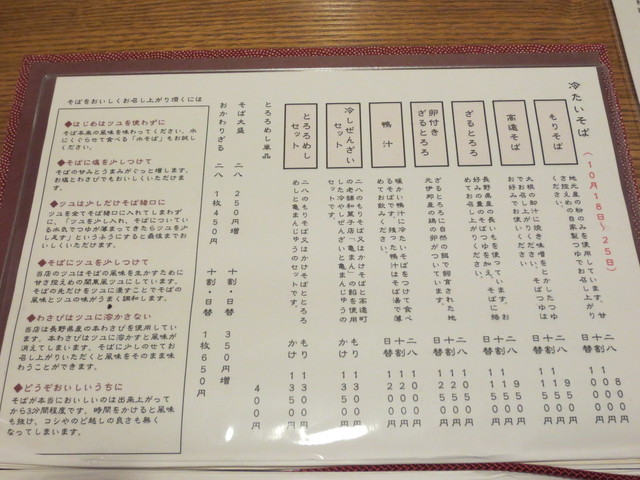 冷たいそば
(10月18日～25日)
もりそば
地元産の粉のみを使用しています。甘
さ控えめの自家製つゆでお召し上がり
ください。
二八 800円
十割 1000円
日替 1000円
高遠そば
大根の卸汁に焼き味噌をとかしたつゆ
でお召し上がりください。そばつゆは
お好みでお使いください
二八 950円
ざるとろろ
長野県産の長いもを使っています。お
好みで蕎麦のそばつゆを加え、そばに絡
めてお召し上がりください。
二八 950円
卵付き
ざるとろろ
ざるとろろに自然の餌で飼育された地
元伊那産の鶏の卵がついています。
鴨汁
暖かい鴨汁に冷たいそばをつけて食べ
るそばです。残った鴨汁はそば湯で薄
めてお飲みください。
冷しぜんざい
セット
二八のもりそば又はかけそばと高遠町
の老舗和菓子店「亀まん」の餡を使用
した冷やしぜんざいと亀まんじゅうの
セットです。
もり 1350円
かけ 1350円
とろろめし
セット
二八のもりそば又はかけそばととろろ
めしと亀まんじゅうのセットです。
もり 1350円
かけ 1350円
とろろめし単品 400円
そば大盛 二八 250円増 十割・日替 350円増
おかわりざる 二八 1枚450円 十割・日替 1枚650円
そばをおいしくお召し上がり頂くには
◆はじめはツユを使わずに
そば本来の風味を味わってください。水
にくぐらせて食べる「水そば」もお試し
ください。
◆そばに塩を少しつけて
そばの甘みとうまみがぐっと増します。
お塩とわさびでもおいしくいただけま
す。
◆ツユは少しだけそば猪口に
ツユを全てそば猪口に入れてしまわず
に、「ツユを少し入れ、そばについてい
る水気でつゆが薄まってきたらツユを少
し足す」というふうにすると最後までお
いしくいただけます。
◆そばにツユを少しつけて
当店のツユはそばの風味を生かすために
甘さ控えめの関東風ツユにしています。
そばの先だけをツユに漬すことでそばの
風味とツユの味がうまく調和します。
◆わさびはツユに溶かさない
当店は長野県産の本わさびを使用してい
ます。本わさびはツユに溶かすと風味が
消えてしまいます。そばに少しのせてお
召し上がりいただくと風味をそのまま味
わうことができます。
◆どうぞおいしいうちに
そばが本当においしいのは出来上がって
から3分間程度です。時間をかけると風味
も抜け、コシやのど越しの良さも無く
なってしまいます。